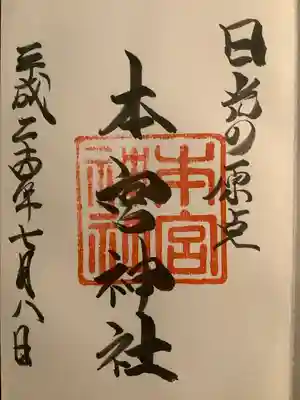 日光の原点
本宮神社
平成二十四年七月八日
本宮
神社